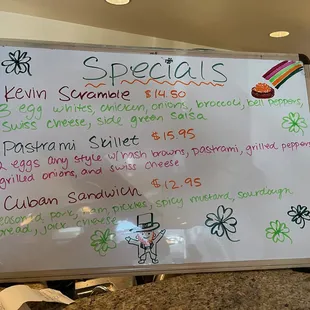 Specials
Kevin Scramble $14.50
3 egg whites, chicken, onions, broccoli, bell peppers,
Swiss cheese, side green salsa
Pastrami Skillet $15.95
2 eggs any style w/ hash browns, pastrami, grilled peppers,
grilled onions, and swiss cheese
Cuban Sandwich $12.95
pork, ham, pickles, spicy mustard, sourdough
bread, jack cheese